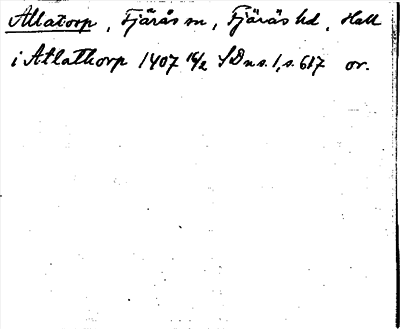 Allatorp, Fjärås sn, Fjäräs hd, Hall
i Atlathorp 1407 16/2 SD ns. 1, s. 617 or.